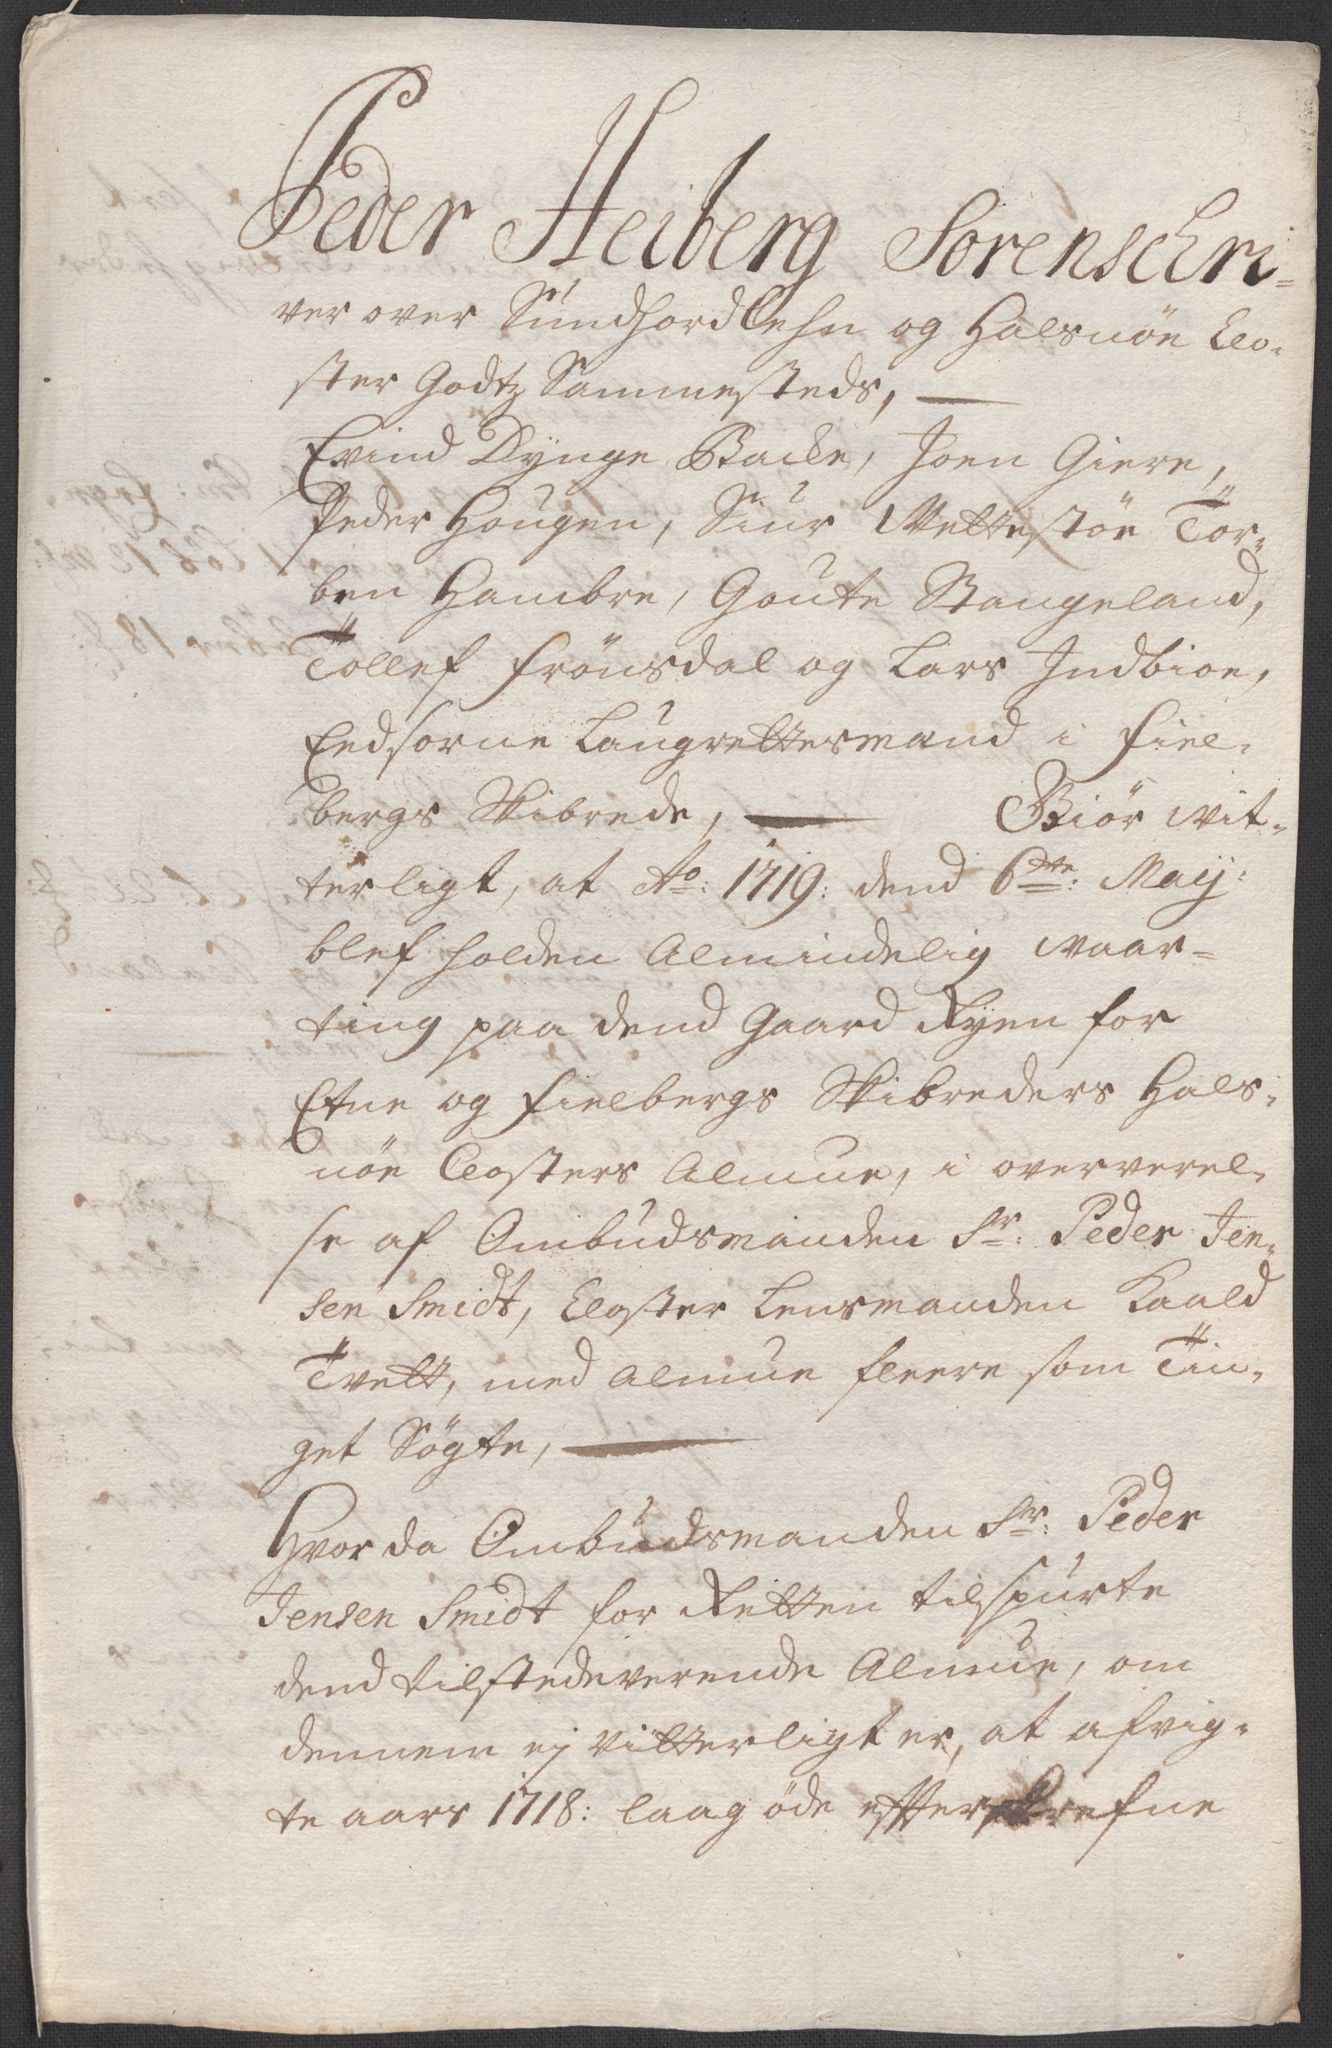 Peder Heiberg Sorenschri-
ver over Sundhordlehn og Halsnöe Clo-
ster Godtz Sammesteds,
Evind Dynge Backe, Joen Giere,
Peder Hougen, Siur Mettestöe Tor-
ben Hambre, Goute Stangeland,
Tollef Frönsdal og Lars Indbioe,
Eedsorne Laugrettesmænd i Fiel-
bergs Skibrede, Giör vit-
terligt, at Ao: 1719: dend 6te: Maij:
blef holden Almindelig Waar-
ting paa dend Gaard Ryen for
Etne og Fielbergs Skibreders Hals-
nöe Closters Almue, i oververel-
se af Ombudsmanden Sr: Peder Jen-
sen Smidt, Closter Lensmanden Kaald
Tvett, med Almue fleere som Tin-
get Søgte,
Hvor da Ombudsmanden Sr: Peder
Jensen Smidt for Retten tilspurte
dend tilstedeverende Almue, om
dennem ej vitterligt er, at afvig-
te aars 1718: laag öde efterskrefne